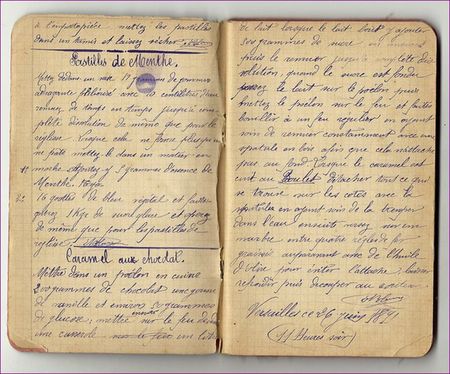 à mettez les pastilles
dans un tamis et laissez sécher
Pastilles de Menthe.
Mettez dedans un vase 17 grammes de gomme
adragante avec 10 centilitres d'eau
remuez de temps en temps jusqu'à com-
plète dissolution de même que pour la
réglisse. Lorsque cela ne forme plus qu'une
pâte mettez le dans un mortier en
marbre Ajoutez y 5 grammes d'essence de
Menthe.
16 gouttes de bleu végétal et
1 Kgr de sucre glace et
de même que pour les pastilles de
réglisse
Caramel au chocolat.
Mettre dans un poêlon en cuivre
200 grammes de chocolat une gousse
de vanille et environ 50 grammes
de glucose, mettre sur le feu dans
une casserole un litre
de lait lorsque le lait bout y ajouter
500 grammes de sucre
puis le remuer jusqu'à complète dis-
solution, quand le sucre est fondu
passez le lait sur le poêlon puis
mettez le poêlon sur le feu et faites
bouillir à un feu régulier en ayant
soin de remuer constamment avec une
spatule en bois afin que cela n'attache
pas au fond lorsque le caramel est
cuit au Boulet détacher tout ce qui
se trouve sur les côtés avec la
spatule en ayant soin de la tremper
dans l'eau ensuite versez sur un
marbre entre quatre règles de fer
graissé auparavant avec de l'huile
d'olive pour éviter l'attache, laissez
refroidir puis découper au couteau
Versailles ce 26 juin 1891
(11 Heures soir)